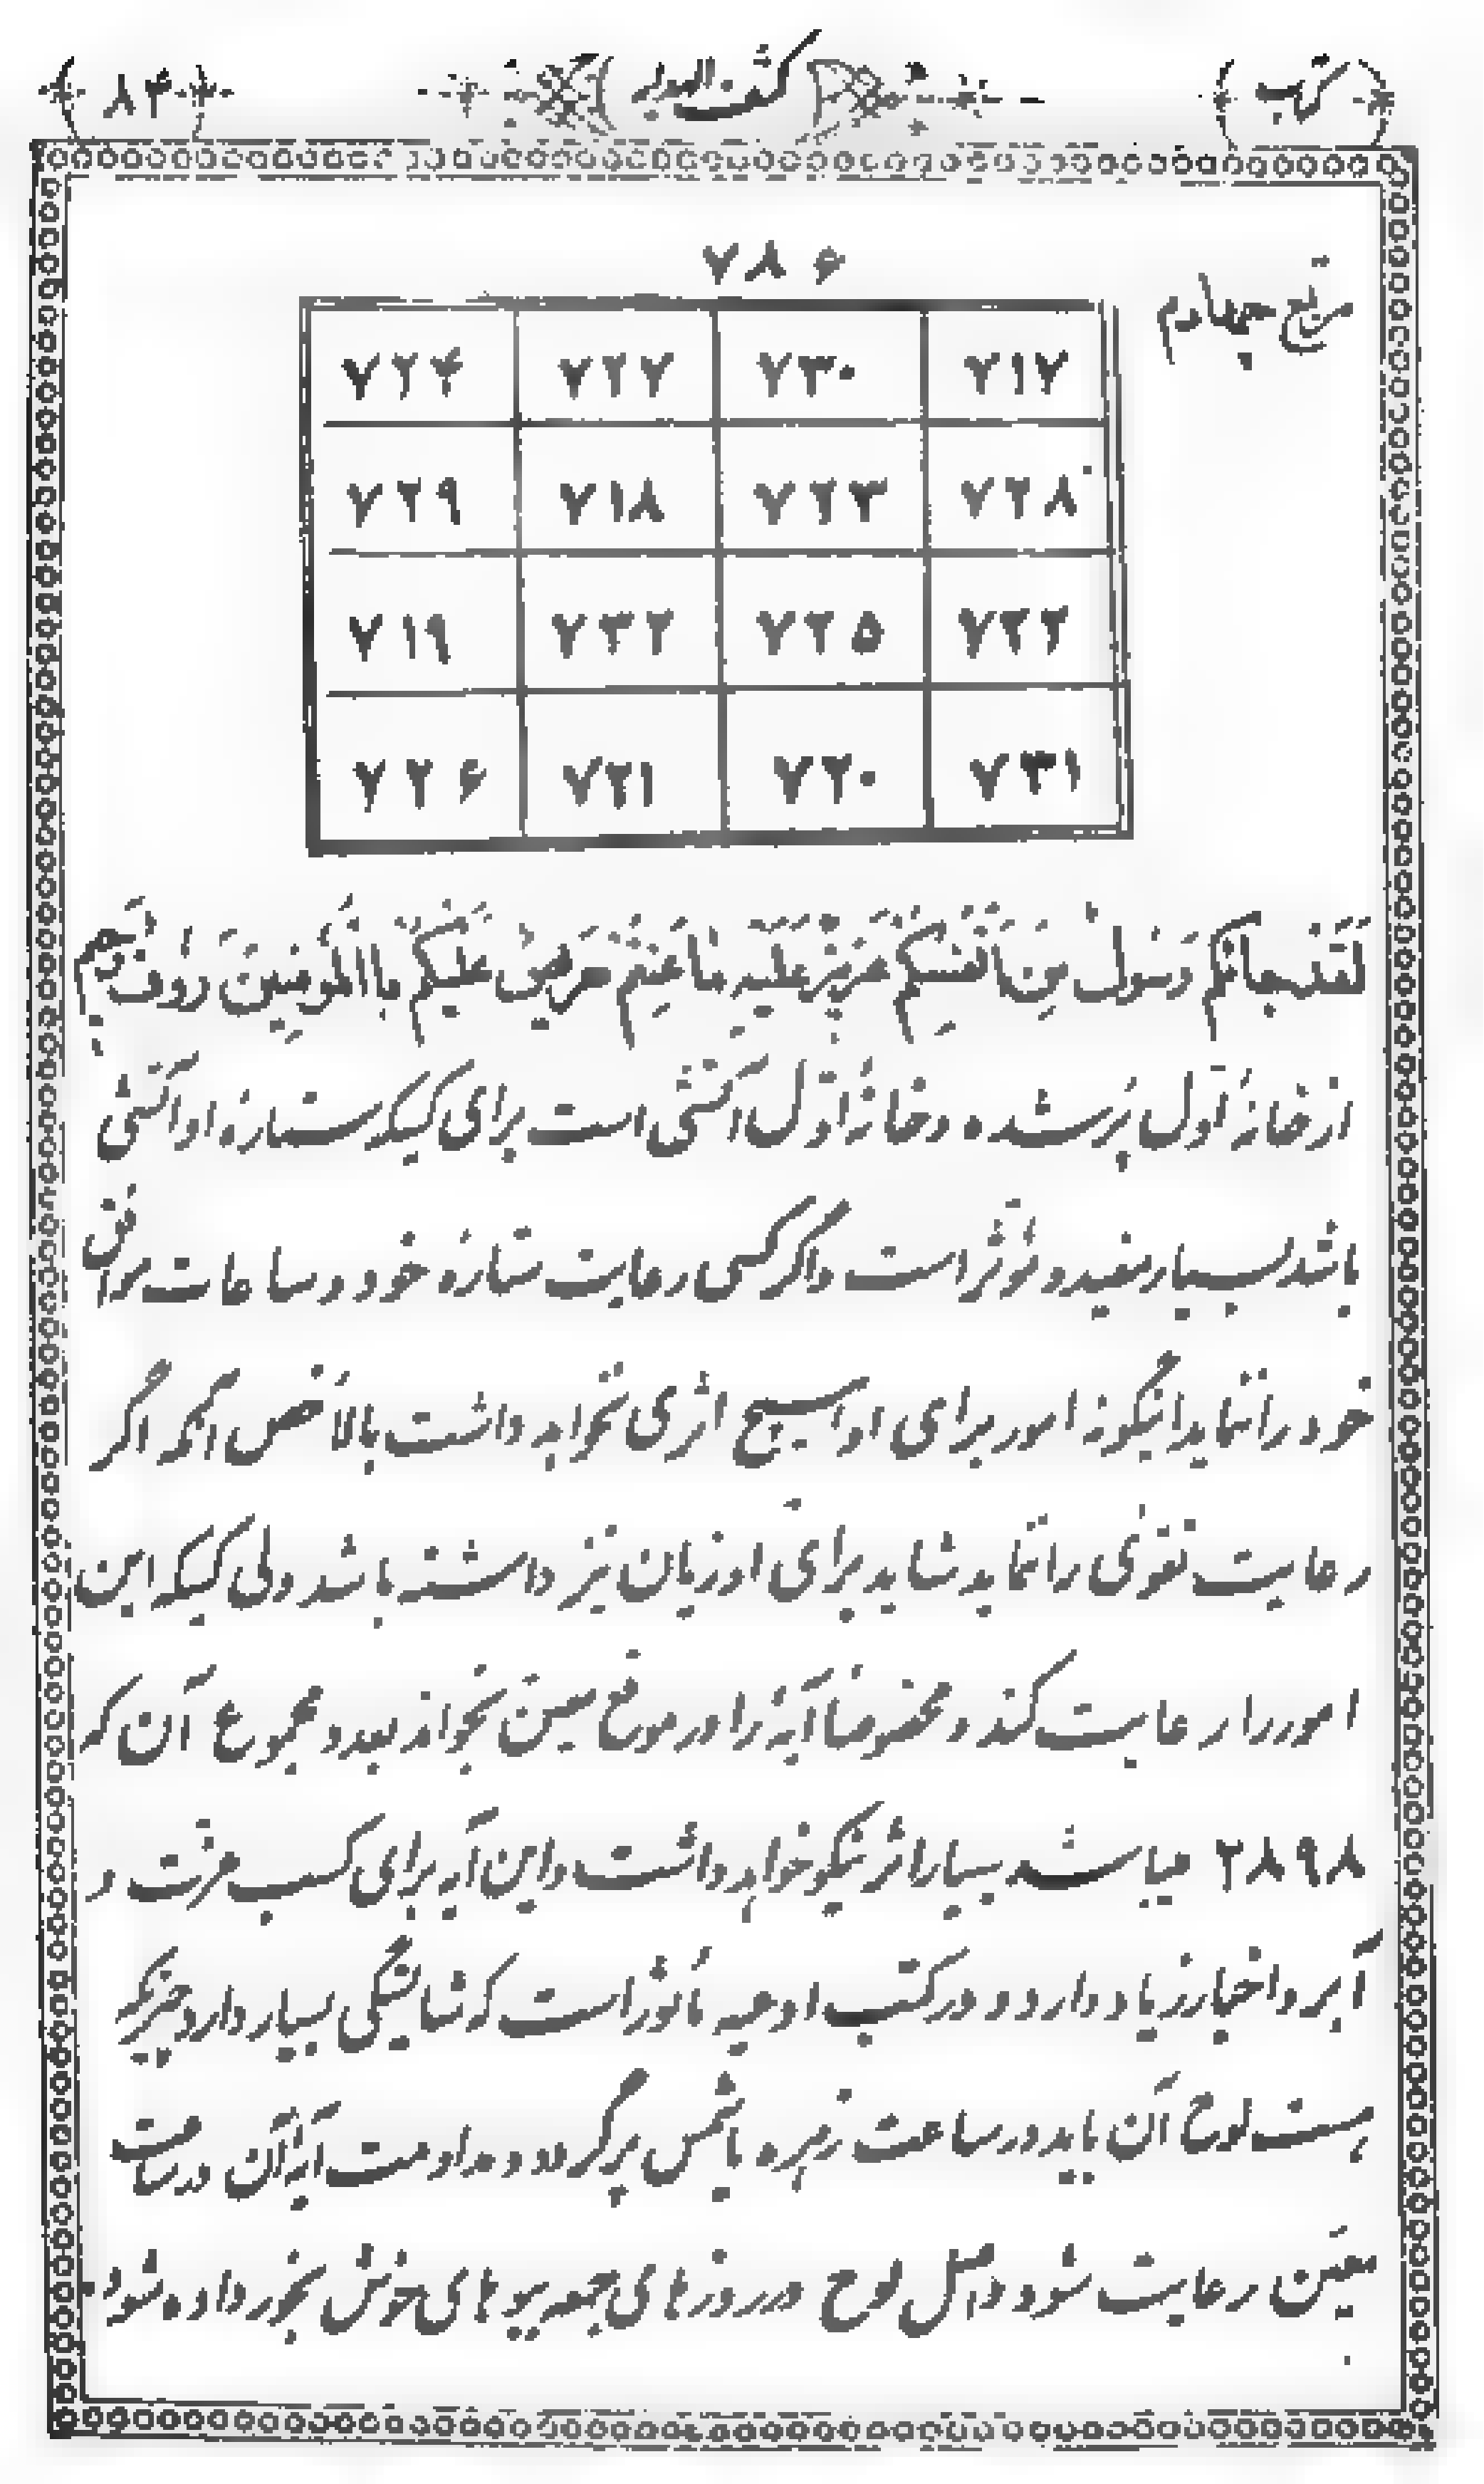 کتاب کشف ۸۴
۷۸۶
مربع چهارم
۷۲۴ ۷۲۷ ۷۳۰ ۷۱۷
۷۲۹ ۷۱۸ ۷۲۳ ۷۲۸
۷۱۹ ۷۳۲ ۷۲۵ ۷۲۲
۷۲۶ ۷۲۱ ۷۲۰ ۷۳۱
لَقَدْ جائَکُم رَسُولٌ مِن اَنفُسِکُم عَزیزٌ عَلَیهِ ما عَنِتُّم حَریصٌ عَلَیکُم باالمُومِنینَ رَؤُفٌ رَحیم
از خانهٔ اول پُر شده و خانهٔ اوّل آتشی است برای کسیکه ستارهٔ او آتشی
باشد بسیار مفید و مؤثّر است و اگر کسی رعایت ستارهٔ خود و ساعات موافق
خود را ننماید اینگونه امور برای او هیچ اثری نخواهد داشت بالأخص آنکه اگر
رعایت تقوی را ننماید شاید برای او زیان نیز داشته باشد ولی کسیکه این
امور را رعایت کند و مخصوصاً آیهٔ را در موقع معین بخواند بعدد مجموع آن که
۲۸۹۸ میباشد بسیار اثر نیکو خواهد داشت و این آیه برای کسب عزت و
آبرو اخبار زیاد وارد و در کتب ادعیه مأثور است که شایستگی بسیار دارد چیزیکه
هست لوح آن باید در ساعت زهره یا شمس پر گردد و مداومت آیهٔ آن در ساعت
معیّن رعایت شود و اصل لوح در روزهای جمعه ببوهای خوش بخور داده شود